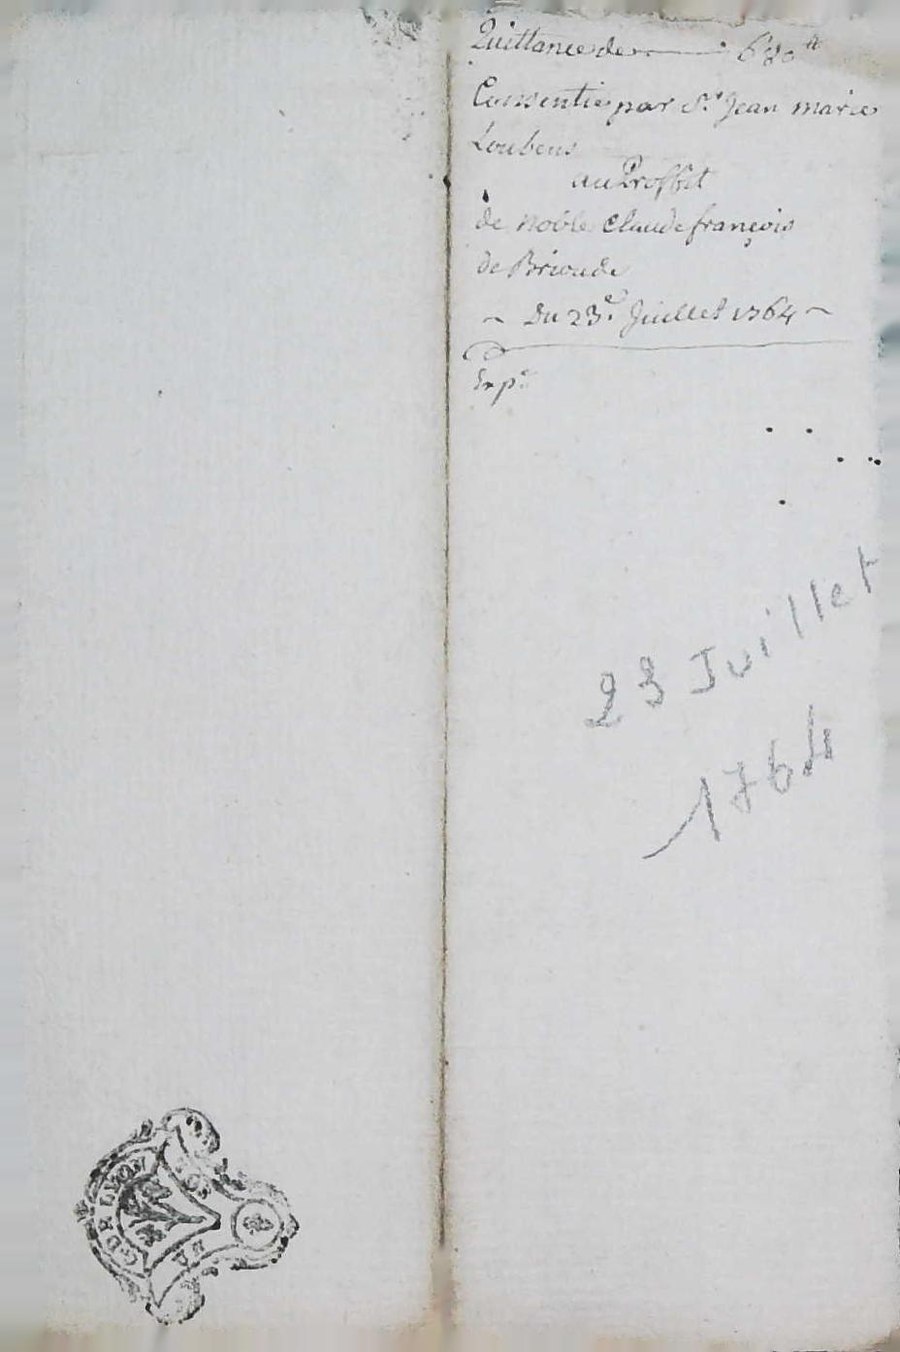 Quittance de 680 ₶
Consentie par Sr. Jean marie
Loubens
au Proffit
de noble Claude françois
de Brioude
~ Du 23e. Juillet 1764 ~
Expe
23 Juillet
1764
G DE LYON